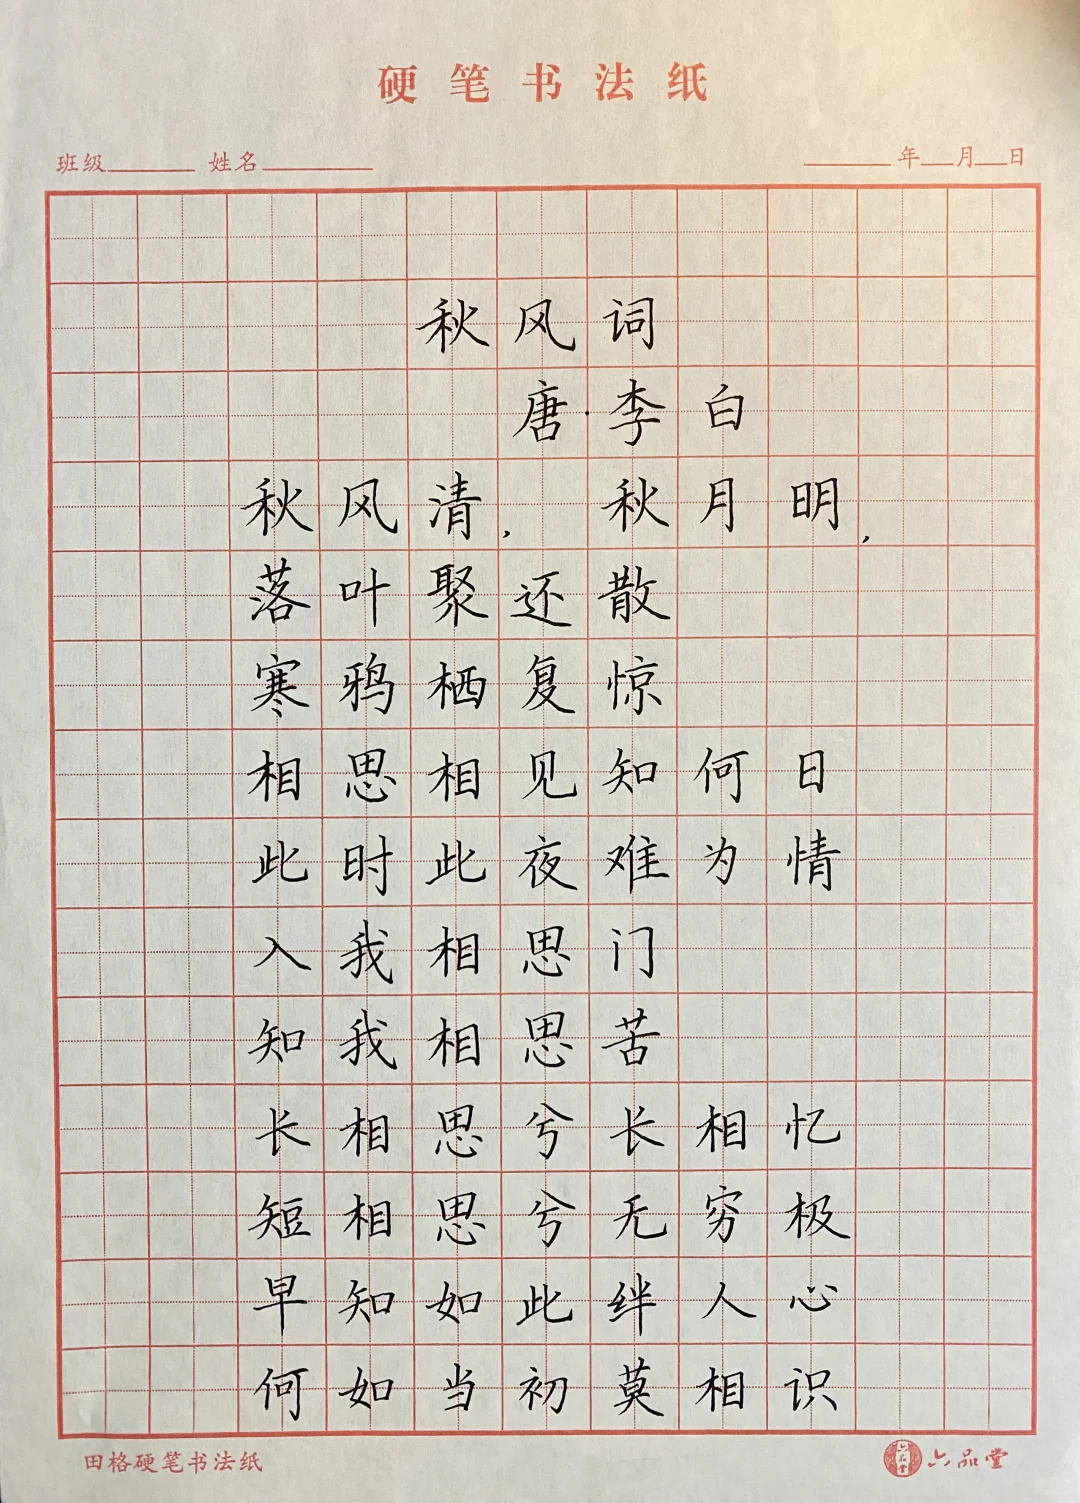 硬笔书法纸
班级 姓名 年 月 日
秋风词
唐·李白
秋风清, 秋月明,
落叶聚还散
寒鸦栖复惊
相思相见知何日
此时此夜难为情
入我相思门
知我相思苦
长相思兮长相忆
短相思兮无穷极
早知如此绊人心
何如当初莫相识
田格硬笔书法纸
六品堂 六品堂